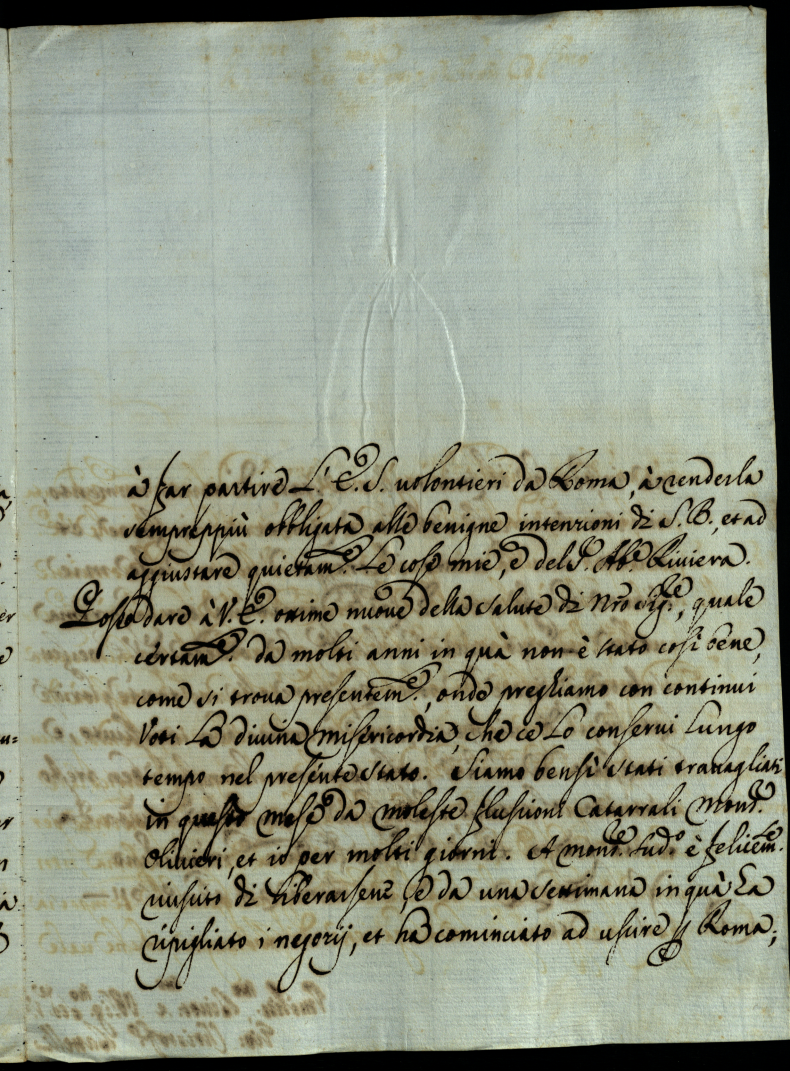 à far partire L'E.S. volontieri da Roma, à renderla
sempreppiù obbligata alle benigne intenzioni di S.B., et ad
aggiustare quietam.e Le cose mie, e del S.r Ab.e Riviera.
Posso dare à V.E. ottime nuove della salute di Nr̃o Sig.re, quale
certam.e da molti anni in quà non è stato così bene,
come si trova presentem.e, onde preghiamo con continui
Voti La divina misericordia, che ce Lo conservi Lungo
tempo nel presente stato. Siamo bensì stati travagliati
in questo mese da moleste flussioni Catarrali Mons.r
Olivieri, et io per molti giorni. A mons.r sud.o è felicem.te
riuscito di liberarsene, e da una settimana in quà ha
ripigliato i negozij, et ha cominciato ad uscire p Roma;